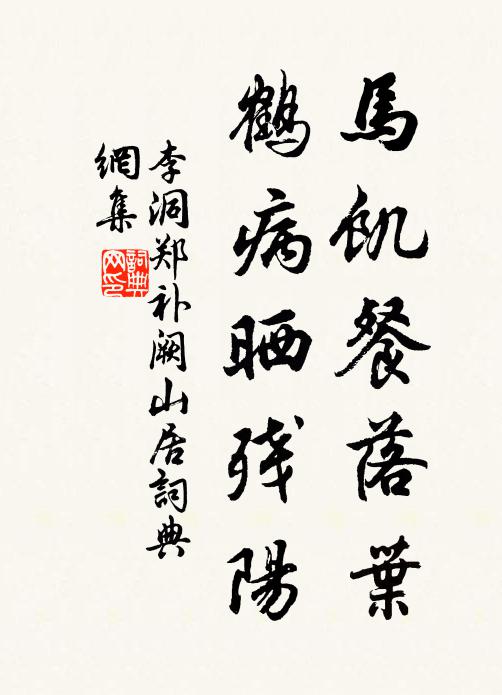 馬飢餐落葉
鶴病晒残陽
李洞郑补阙山居詞典
網集
詞典
网印